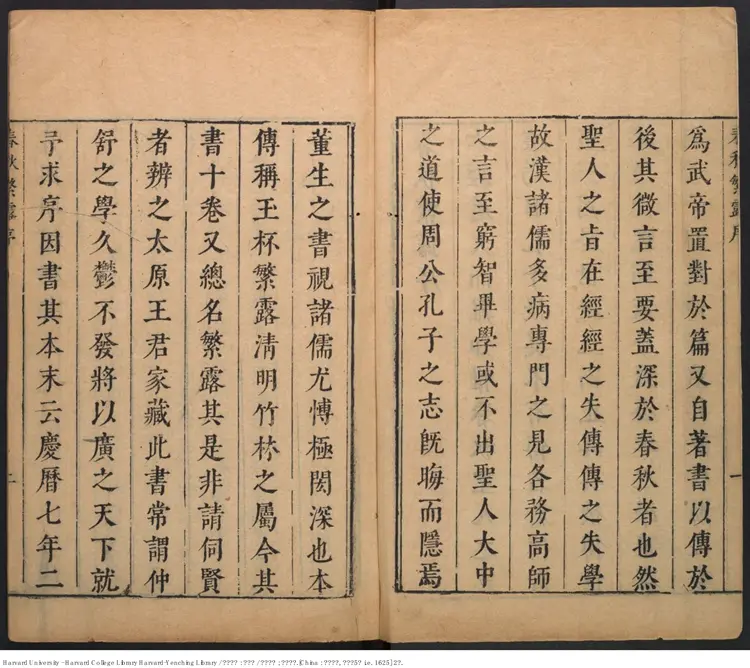 爲武帝置對於篇又自著書以傳於
後其微言至要蓋深於春秋者也然
聖人之旨在經經之失傳傳之失學
故漢諸儒多病專門之見各務高師
之言至窮智畢學或不出聖人大中
之道使周公孔子之志旣晦而隱焉
董生之書視諸儒尤博極閎深也本
傳稱王杯繁露淸明竹林之屬今其
書十卷又總名繁露其是非請伺賢
者辨之太原王君家藏此書常謂仲
舒之學久鬱不發將以廣之天下就
予求序因書其本末云慶曆七年二
春秋繁露序
二
Harvard University - Harvard College Library Harvard-Yenching Library / ???? : ??? / ???? ; ????. [China : ????, ???5? ie. 1625] 2?.